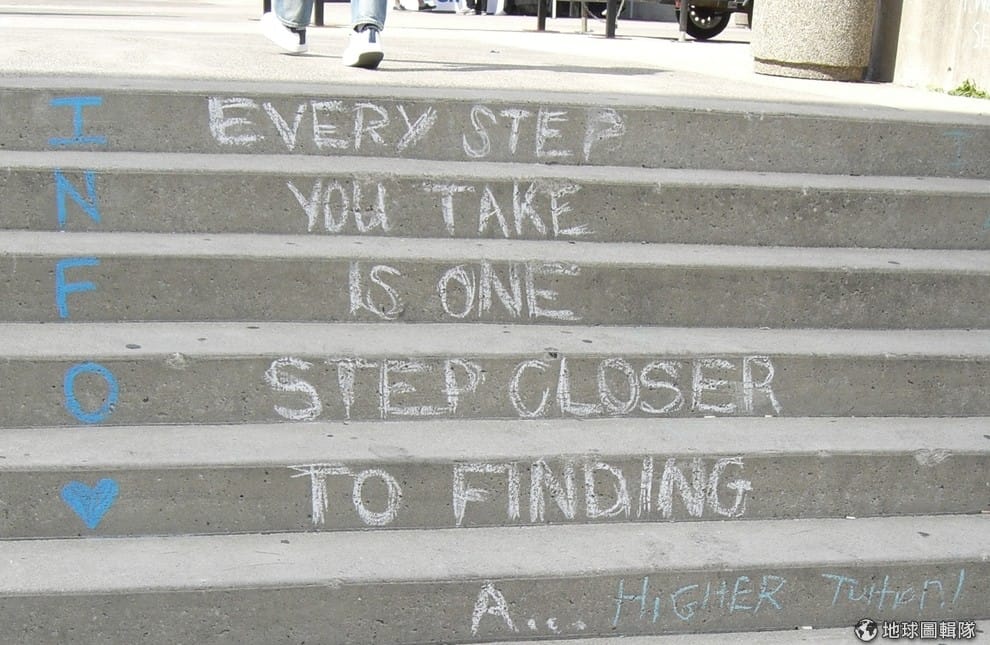 I EVERY STEP
N YOU TAKE
F IS ONE
O STEP CLOSER
♥ TO FINDING
A... HIGHER TUITION!
地球圖輯隊